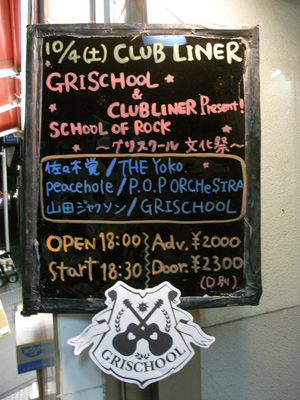 10/4(土) CLUB LINER
GRISCHOOL
&
CLUBLINER Present!
SCHOOL OF ROCK
〜グリスクール 文化祭〜
佐々木覚/THE Yoko
peacehole/P.O.P ORCHeSTRA
山田ジャクソン/GRISCHOOL
OPEN 18:00 Adv. ¥2000
Start 18:30 Door. ¥2300
(D別)
GRISCHOOL